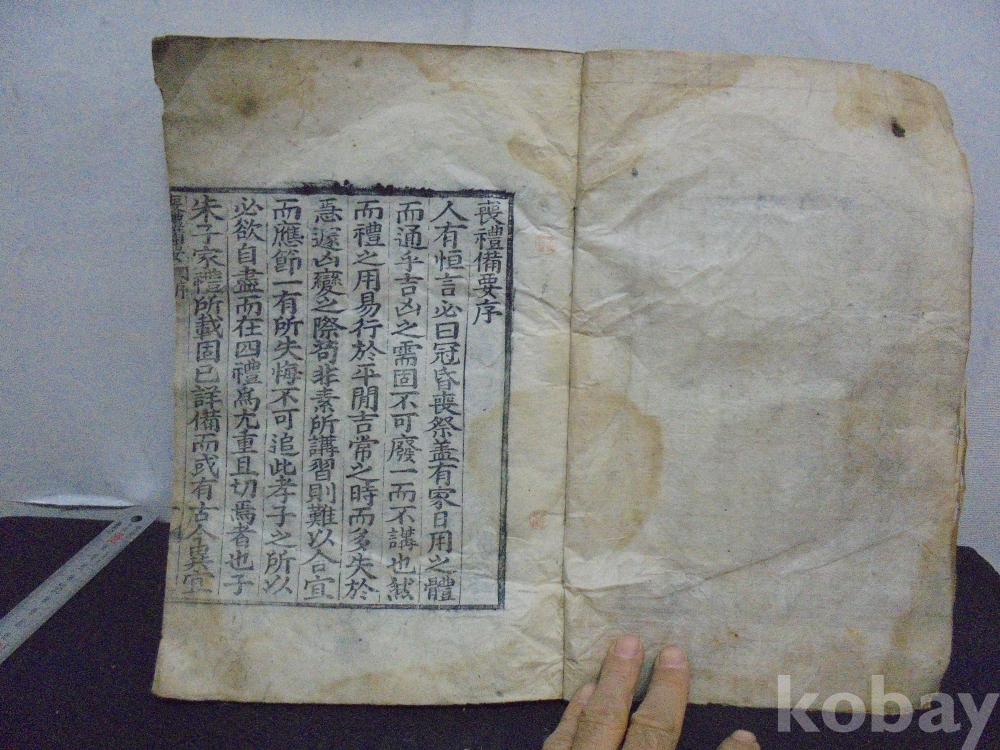 喪禮備要序
人有恒言必曰冠昏喪祭盖有家日用之體
而通乎吉凶之需固不可廢一而不講也然
而禮之用易行於平閒吉常之時而多失於
急遽凶變之際苟非素所講習則難以合宜
而應節一有所失悔不可追此孝子之所以
必欲自盡而在四禮爲尤重且切焉者也子
朱子家禮所載固已詳備而或有古今異宜
kobay